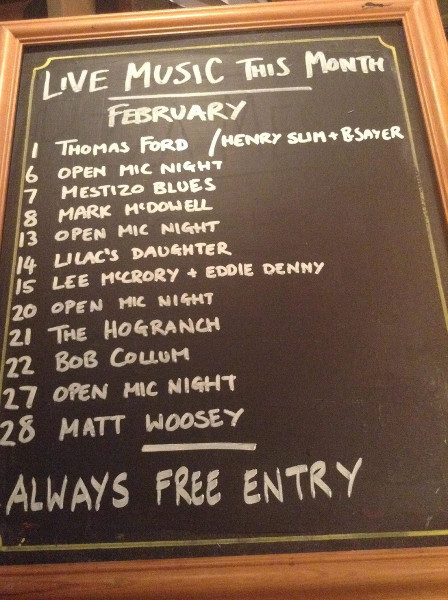 LIVE MUSIC THIS MONTH
FEBRUARY
1 THOMAS FORD / HENRY SLIM + B SAYER
6 OPEN MIC NIGHT
7 MESTIZO BLUES
8 MARK McDOWELL
13 OPEN MIC NIGHT
14 LILAC'S DAUGHTER
15 LEE McCRORY + EDDIE DENNY
20 OPEN MIC NIGHT
21 THE HOGRANCH
22 BOB COLLUM
27 OPEN MIC NIGHT
28 MATT WOOSEY
ALWAYS FREE ENTRY